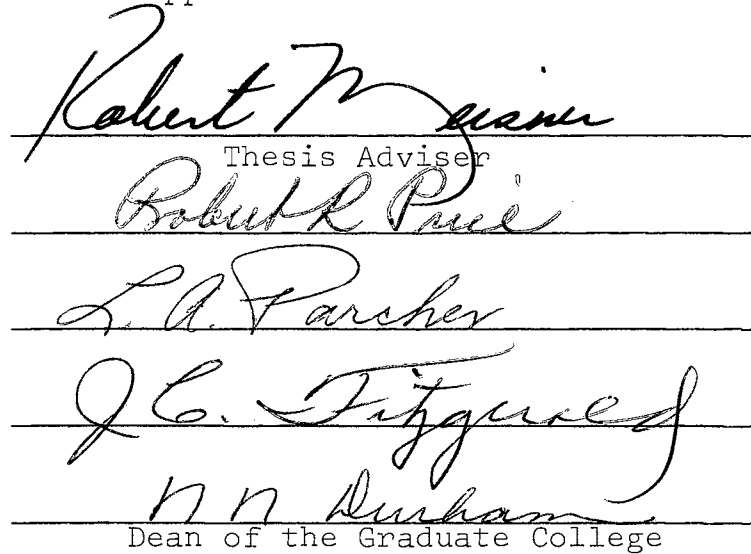 Robert Meisner
Thesis Adviser
Robert R Price
L. A. Parcher
J. C. Fitzgerald
N N Durham
Dean of the Graduate College